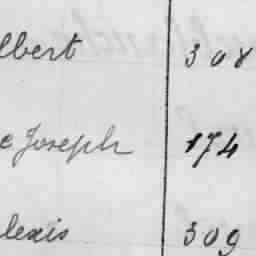 lbert 308
c Joseph 174
lexis 309